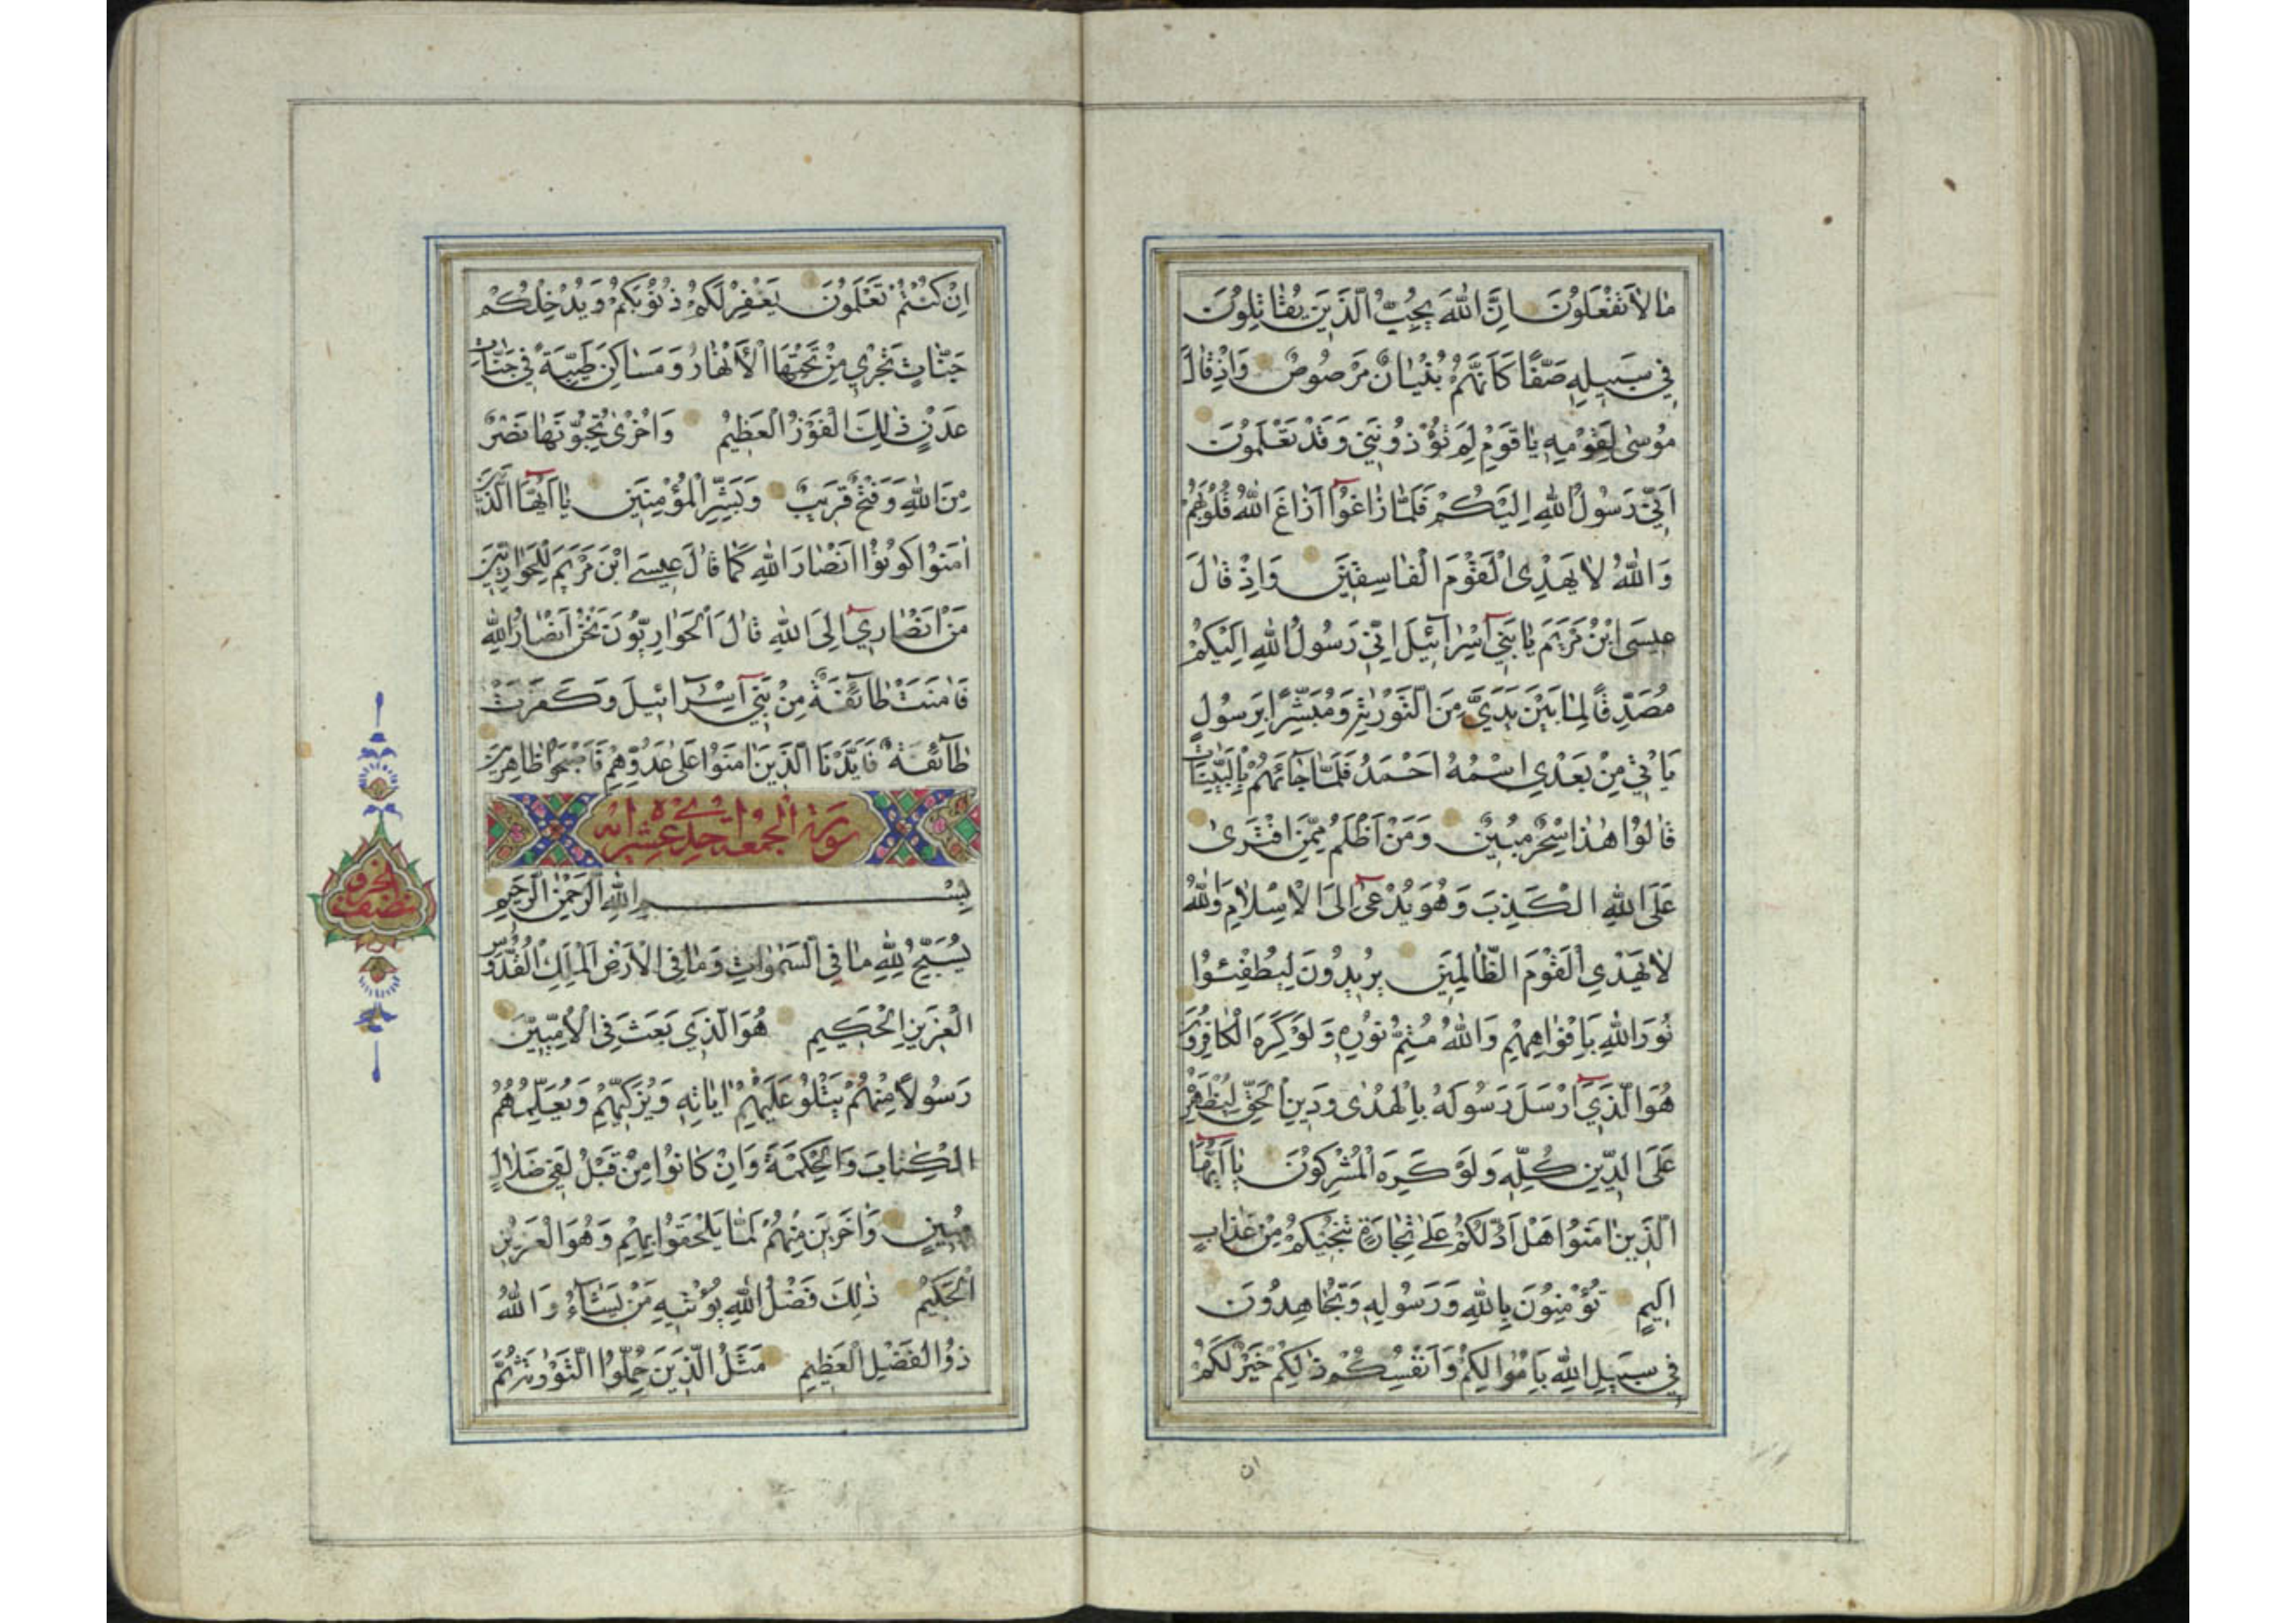 مٰا لاٰ تَفْعَلُونَ اِنَّ اللّٰهَ يُحِبُّ الَّذِينَ يُقٰاتِلُونَ
فِي سَبِيلِهِ صَفًّا كَاَنَّهُمْ بُنْيٰانٌ مَرْصُوصٌ وَاِذْ قٰالَ
مُوسىٰ لِقَوْمِهِ يٰا قَوْمِ لِمَ تُؤْذُونَنِي وَقَدْ تَعْلَمُونَ
اَنِّي رَسُولُ اللّٰهِ اِلَيْكُمْ فَلَمّٰا زٰاغُوا اَزٰاغَ اللّٰهُ قُلُوبَهُمْ
وَاللّٰهُ لاٰ يَهْدِي الْقَوْمَ الْفٰاسِقِينَ وَاِذْ قٰالَ
عِيسَى ابْنُ مَرْيَمَ يٰا بَنِي اِسْرٰائِيلَ اِنِّي رَسُولُ اللّٰهِ اِلَيْكُمْ
مُصَدِّقًا لِمٰا بَيْنَ يَدَيَّ مِنَ التَّوْرٰيةِ وَمُبَشِّرًا بِرَسُولٍ
يَاْتِي مِنْ بَعْدِي اسْمُهُ اَحْمَدُ فَلَمّٰا جٰائَهُمْ بِالْبَيِّنٰاتِ
قٰالُوا هٰذٰا سِحْرٌ مُبِينٌ وَمَنْ اَظْلَمُ مِمَّنِ افْتَرىٰ
عَلَى اللّٰهِ الْكَذِبَ وَهُوَ يُدْعىٰ اِلَى الْاِسْلاٰمِ وَاللّٰهُ
لاٰ يَهْدِي الْقَوْمَ الظّٰالِمِينَ يُرِيدُونَ لِيُطْفِئُوا
نُورَ اللّٰهِ بِاَفْوٰاهِهِمْ وَاللّٰهُ مُتِمُّ نُورِهِ وَلَوْ كَرِهَ الْكٰافِرُونَ
هُوَ الَّذِي اَرْسَلَ رَسُولَهُ بِالْهُدىٰ وَدِينِ الْحَقِّ لِيُظْهِرَهُ
عَلَى الدِّينِ كُلِّهِ وَلَوْ كَرِهَ الْمُشْرِكُونَ يٰا اَيُّهَا
الَّذِينَ اٰمَنُوا هَلْ اَدُلُّكُمْ عَلىٰ تِجٰارَةٍ تُنْجِيكُمْ مِنْ عَذٰابٍ
اَلِيمٍ تُؤْمِنُونَ بِاللّٰهِ وَرَسُولِهِ وَتُجٰاهِدُونَ
فِي سَبِيلِ اللّٰهِ بِاَمْوٰالِكُمْ وَاَنْفُسِكُمْ ذٰلِكُمْ خَيْرٌ لَكُمْ
ان
اِنْ كُنْتُمْ تَعْلَمُونَ يَغْفِرْ لَكُمْ ذُنُوبَكُمْ وَيُدْخِلْكُمْ
جَنّٰاتٍ تَجْرِي مِنْ تَحْتِهَا الْاَنْهٰارُ وَمَسٰاكِنَ طَيِّبَةً فِي جَنّٰاتِ
عَدْنٍ ذٰلِكَ الْفَوْزُ الْعَظِيمُ وَاُخْرىٰ تُحِبُّونَهٰا نَصْرٌ
مِنَ اللّٰهِ وَفَتْحٌ قَرِيبٌ وَبَشِّرِ الْمُؤْمِنِينَ يٰا اَيُّهَا الَّذِينَ
اٰمَنُوا كُونُوا اَنْصٰارَ اللّٰهِ كَمٰا قٰالَ عِيسَى ابْنُ مَرْيَمَ لِلْحَوٰارِيِّينَ
مَنْ اَنْصٰارِي اِلَى اللّٰهِ قٰالَ الْحَوٰارِيُّونَ نَحْنُ اَنْصٰارُ اللّٰهِ
فَاٰمَنَتْ طٰائِفَةٌ مِنْ بَنِي اِسْرٰائِيلَ وَكَفَرَتْ
طٰائِفَةٌ فَاَيَّدْنَا الَّذِينَ اٰمَنُوا عَلىٰ عَدُوِّهِمْ فَاَصْبَحُوا ظٰاهِرِينَ
سورة الجمعة احدى عشر اية
بِسْمِ اللّٰهِ الرَّحْمٰنِ الرَّحِيمِ
يُسَبِّحُ لِلّٰهِ مٰا فِي السَّمٰوٰاتِ وَمٰا فِي الْاَرْضِ الْمَلِكِ الْقُدُّوسِ
الْعَزِيزِ الْحَكِيمِ هُوَ الَّذِي بَعَثَ فِي الْاُمِّيِّينَ
رَسُولاً مِنْهُمْ يَتْلُو عَلَيْهِمْ اٰيٰاتِهِ وَيُزَكِّيهِمْ وَيُعَلِّمُهُمُ
الْكِتٰابَ وَالْحِكْمَةَ وَاِنْ كٰانُوا مِنْ قَبْلُ لَفِي ضَلاٰلٍ
مُبِينٍ وَاٰخَرِينَ مِنْهُمْ لَمّٰا يَلْحَقُوا بِهِمْ وَهُوَ الْعَزِيزُ
الْحَكِيمُ ذٰلِكَ فَضْلُ اللّٰهِ يُؤْتِيهِ مَنْ يَشٰاءُ وَاللّٰهُ
ذُو الْفَضْلِ الْعَظِيمِ مَثَلُ الَّذِينَ حُمِّلُوا التَّوْرٰيةَ ثُمَّ
نصف الحزب